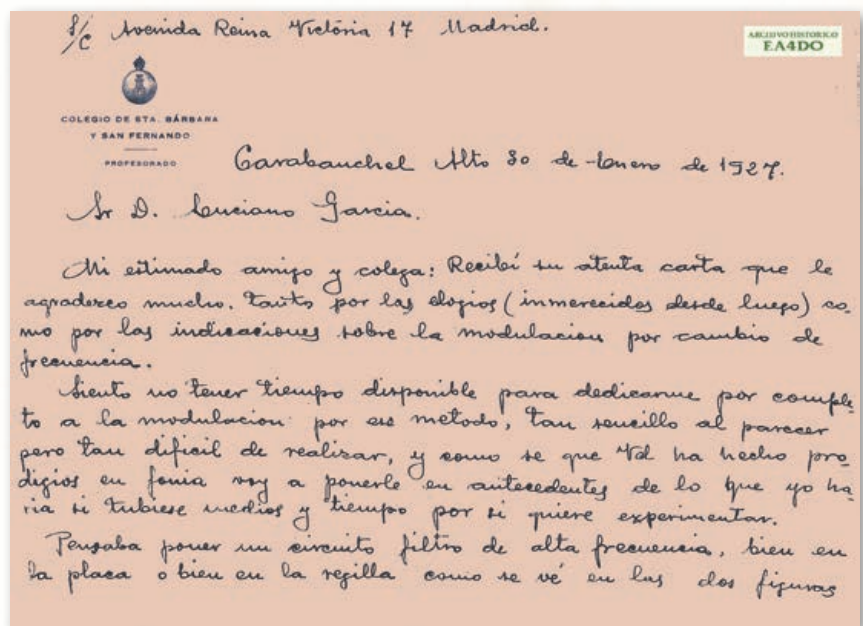 S/C Avenida Reina Victoria 17 Madrid.
ARCHIVO HISTORICO
EA4DO
COLEGIO DE STA. BÁRBARA
Y SAN FERNANDO
PROFESORADO
Carabanchel Alto 30 de Enero de 1927.
Sr D. Luciano Garcia.
Mi estimado amigo y colega: Recibí su atenta carta que le
agradezco mucho. Tanto por los elogios (inmerecidos desde luego) co-
mo por las indicaciones sobre la modulacion por cambio de
frecuencia.
Siento no tener tiempo disponible para dedicarme por comple-
to a la modulacion por ese metodo, tan sencillo al parecer
pero tan dificil de realizar, y como se que Vd ha hecho pro-
digios en fonia voy a ponerle en antecedentes de lo que yo ha-
ria si tubiese medios y tiempo por si quiere experimentar.
Pensaba poner un circuito filtro de alta frecuencia, bien en
la placa o bien en la regilla como se vé en las dos figuras